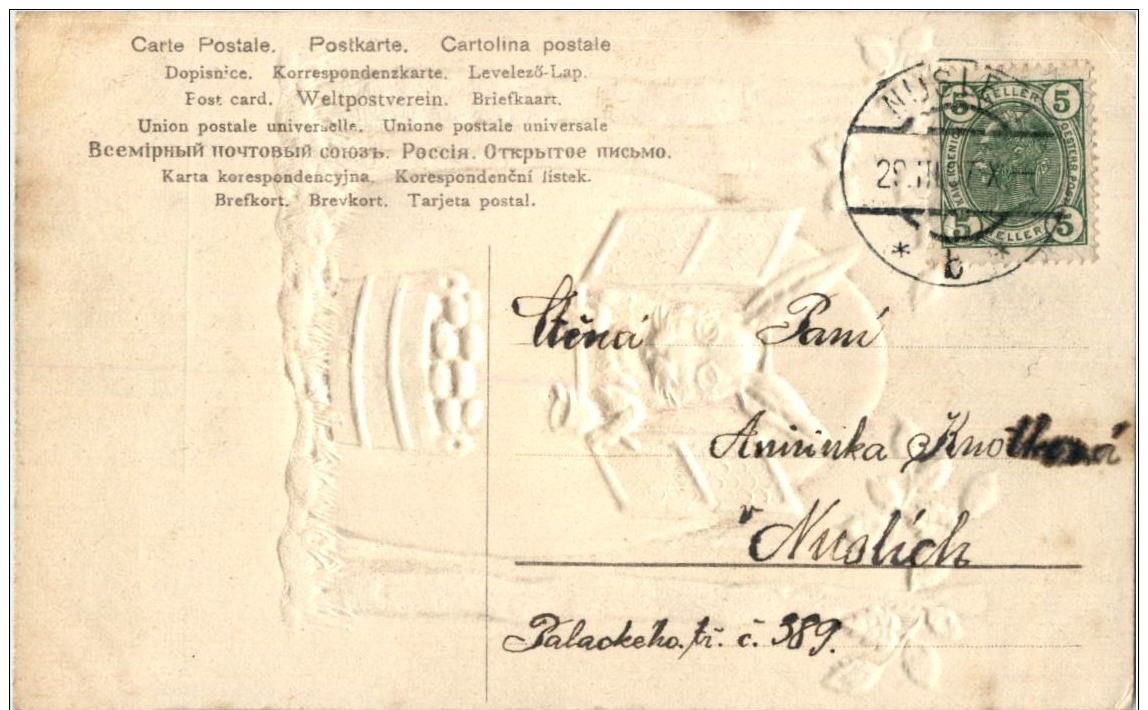 Carte Postale. Postkarte. Cartolina postale
Dopisnice. Korrespondenzkarte. Levelező-Lap.
Post card. Weltpostverein. Briefkaart.
Union postale universelle. Unione postale universale
Всемірный почтовый союзъ. Россія. Открытое письмо.
Karta korespondencyjna. Korespondenční listek.
Brefkort. Brevkort. Tarjeta postal.
NUSLE
* b *
5 HELLER 5
5 HELLER 5
Ctěná Paní
Aninka Knotková
v Nuslích
Palackeho. tř. č. 389.